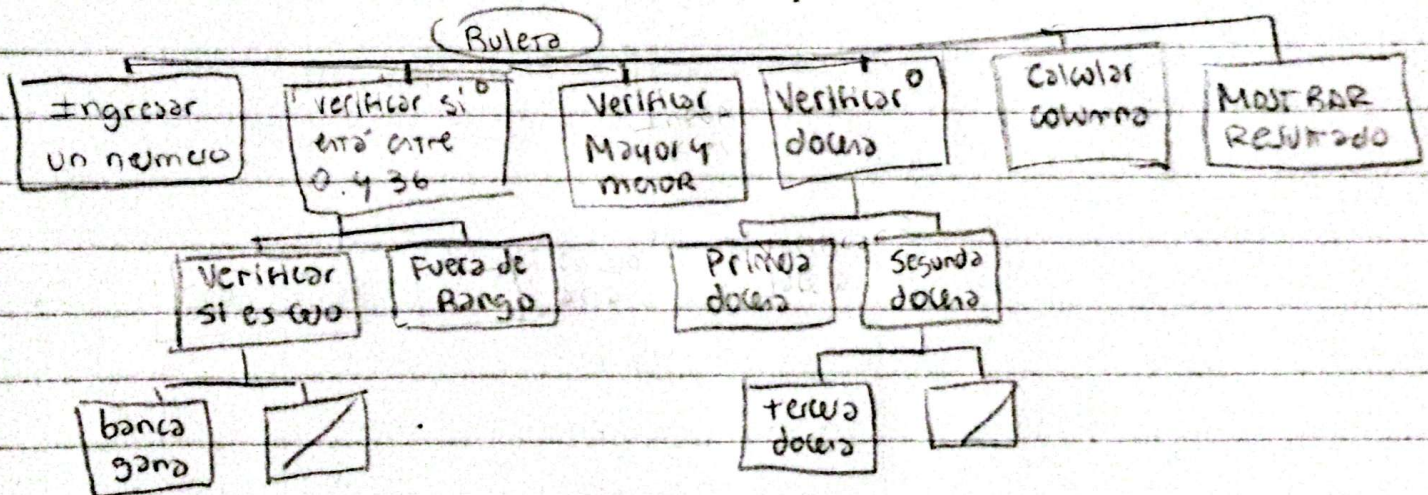 Ruleta
Ingresar
un numero
verificar si o
está entre
0 y 36
Verificar
Mayor y
menor
Verificar o
docena
Calcular
columna
MOSTRAR
Resultado
Verificar
si es cero
Fuera de
Rango
Primera
docena
Segunda
docena
banca
gana
tercera
docena